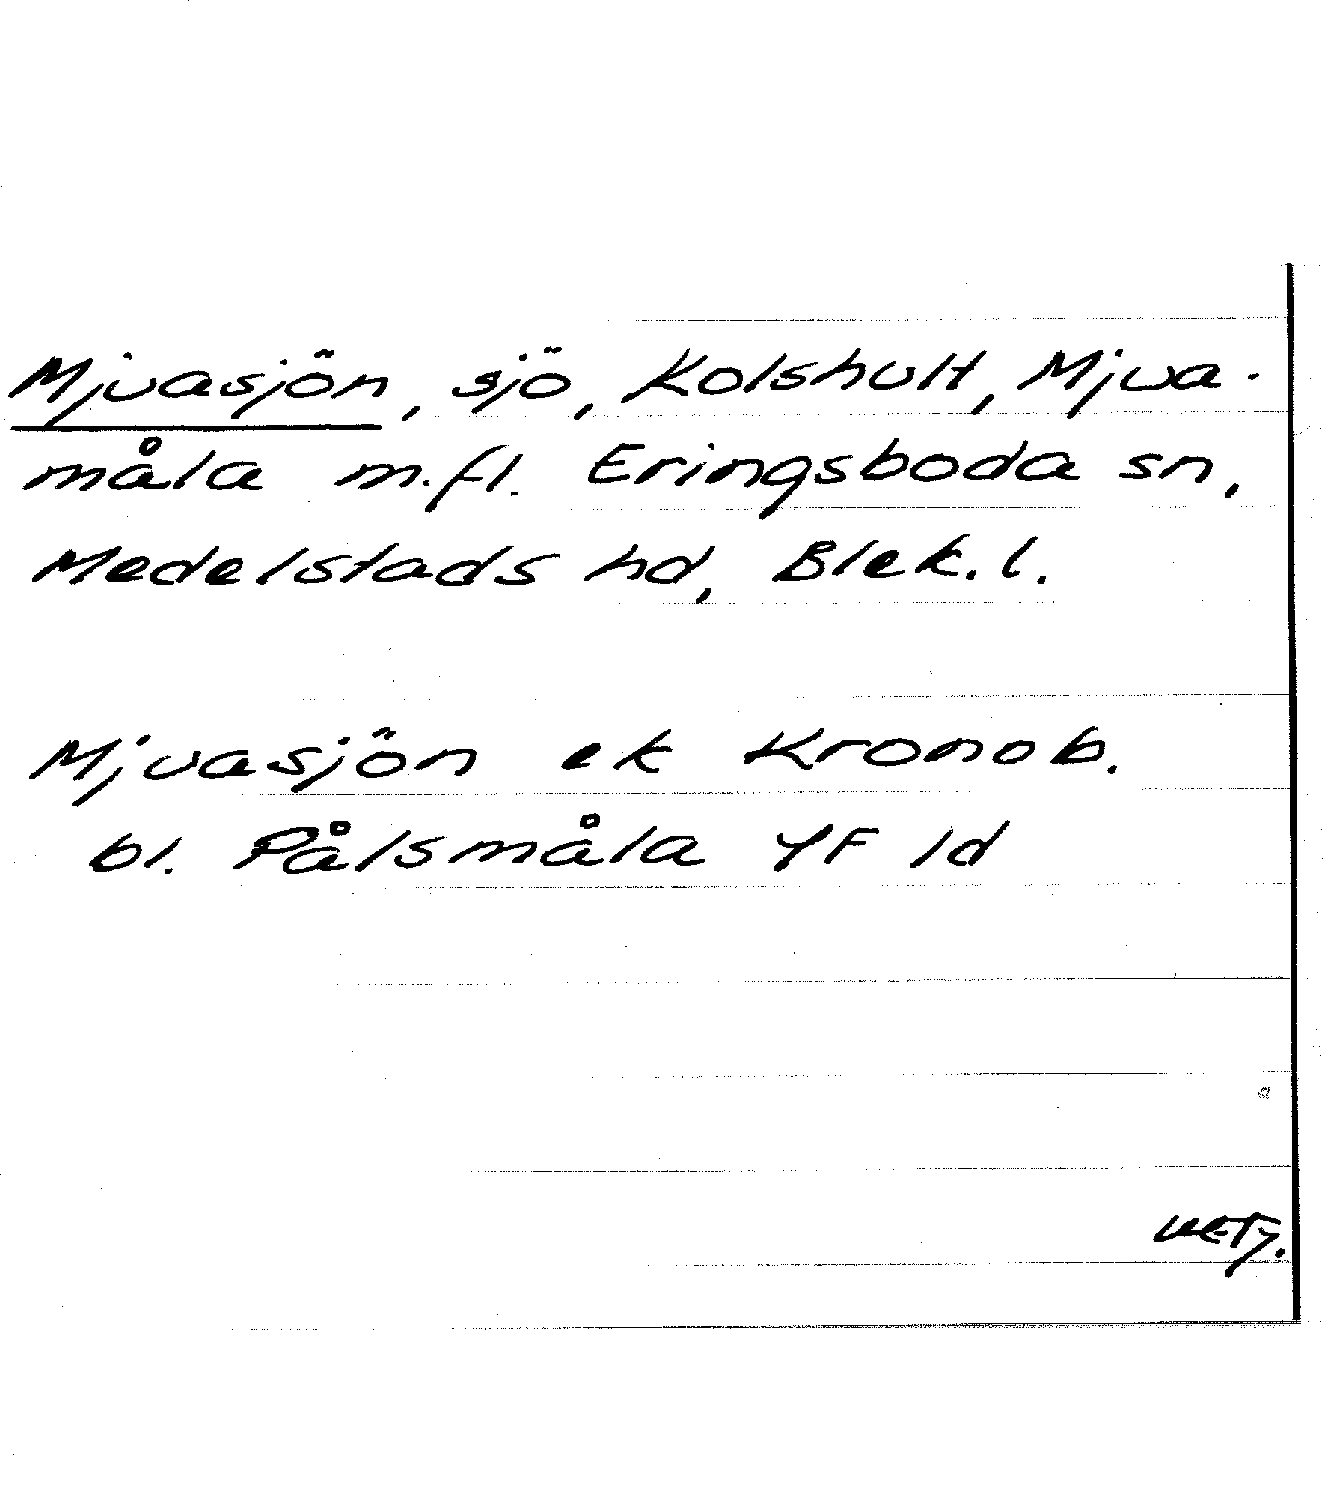 Mjuasjön, sjö, Kolshult, Mjua-
måla m.fl. Eringsboda sn,
Medelstads hd, Blek. l.
Mjuasjön ek Kronob.
bl. Pålsmåla YF 1d